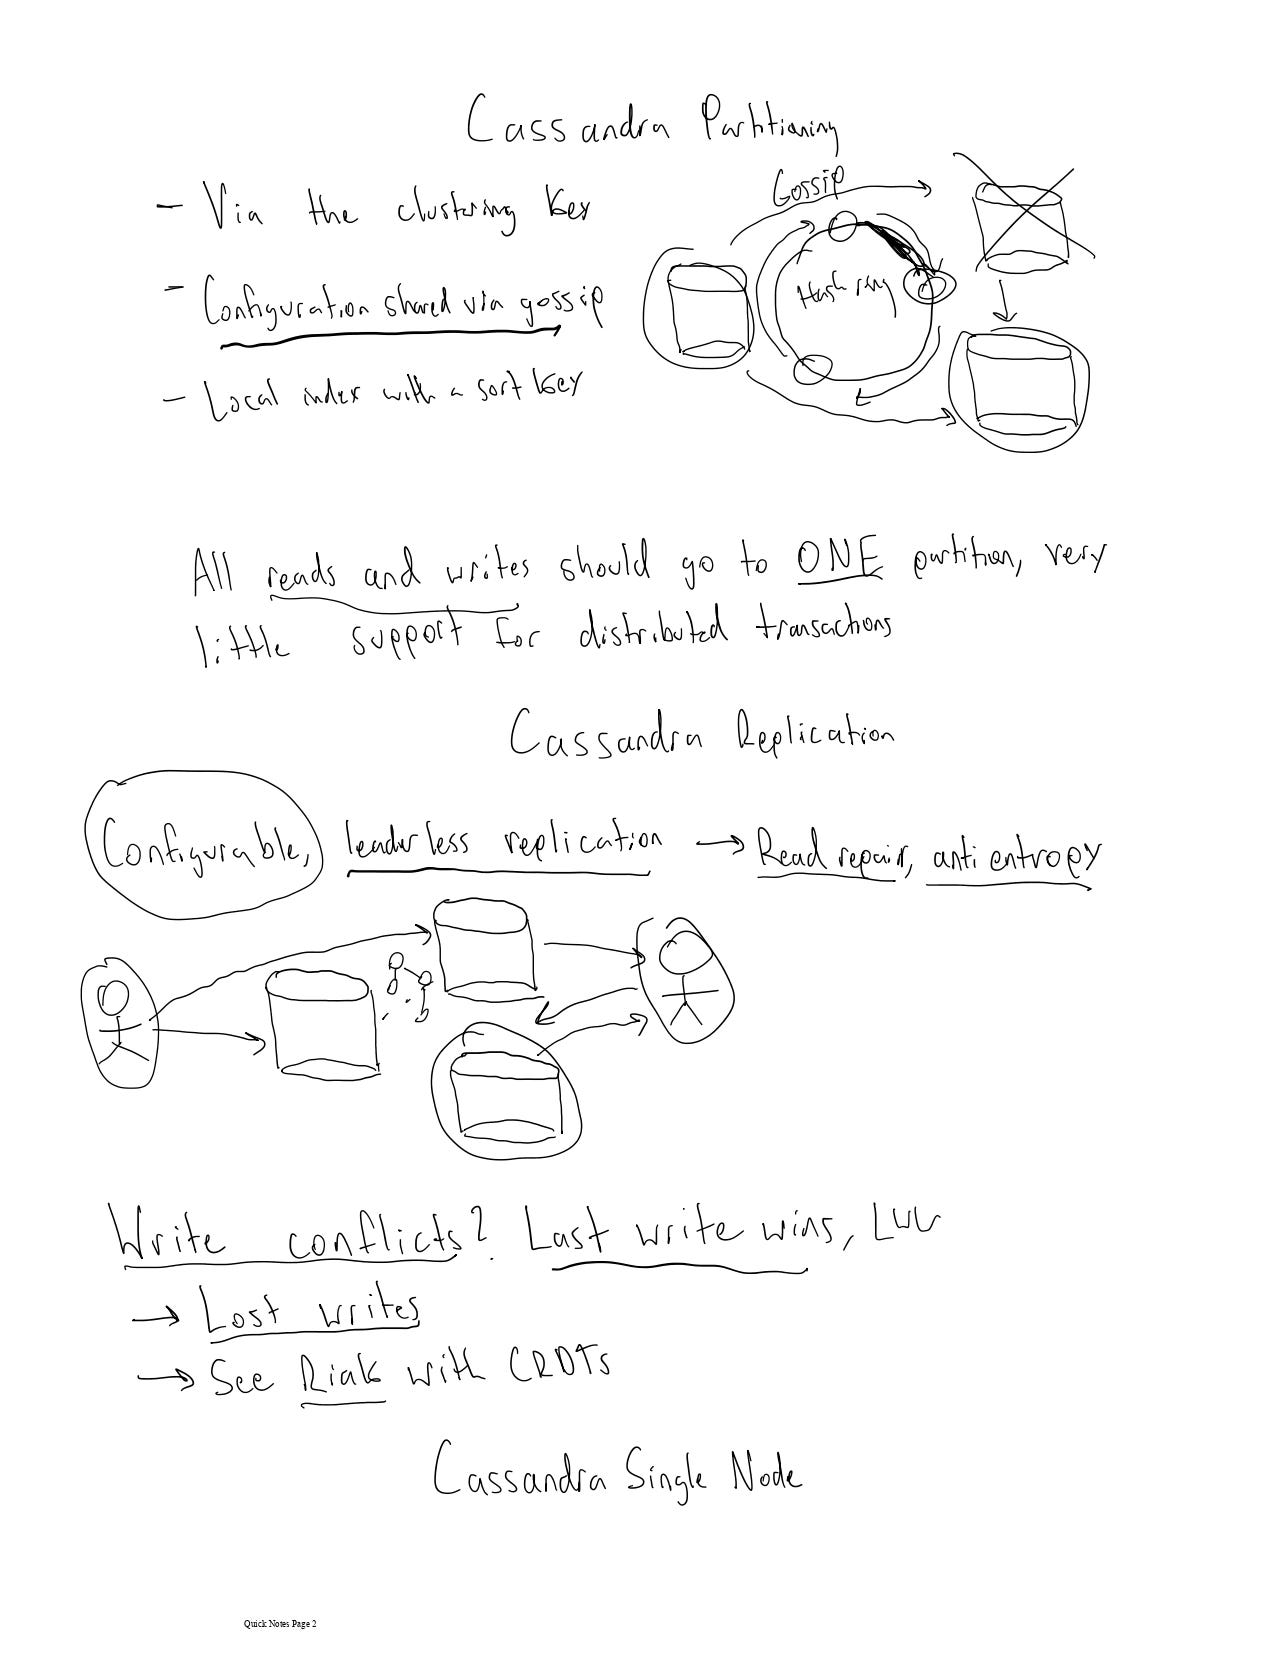 Cassandra Partitioning
Gossip
- Via the clustering key
- Configuration shared via gossip
Hash ring
- Local index with a sort key
All reads and writes should go to ONE partition, very
little support for distributed transactions
Cassandra Replication
Configurable, leaderless replication → Read repair, anti entropy
Write conflicts? Last write wins, LWW
→ Lost writes
→ See Riak with CRDTs
Cassandra Single Node
Quick Notes Page 2